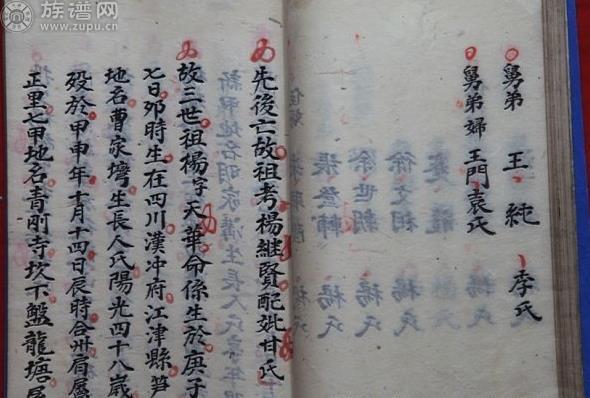 族谱网
www.zupu.cn
舅弟 王純 李氏
舅弟婦 王門袁氏
先後亡故祖考楊継賢配妣甘氏
故三世祖楊字天華命係生於庚子
七日夘時生在四川漢冲府江津縣笋
地名曹家塆生長人氏陽光四十八歲
殁於甲申年十月十四日辰時合州肩属
正里七甲地名青剛寺坎下盤龍塘